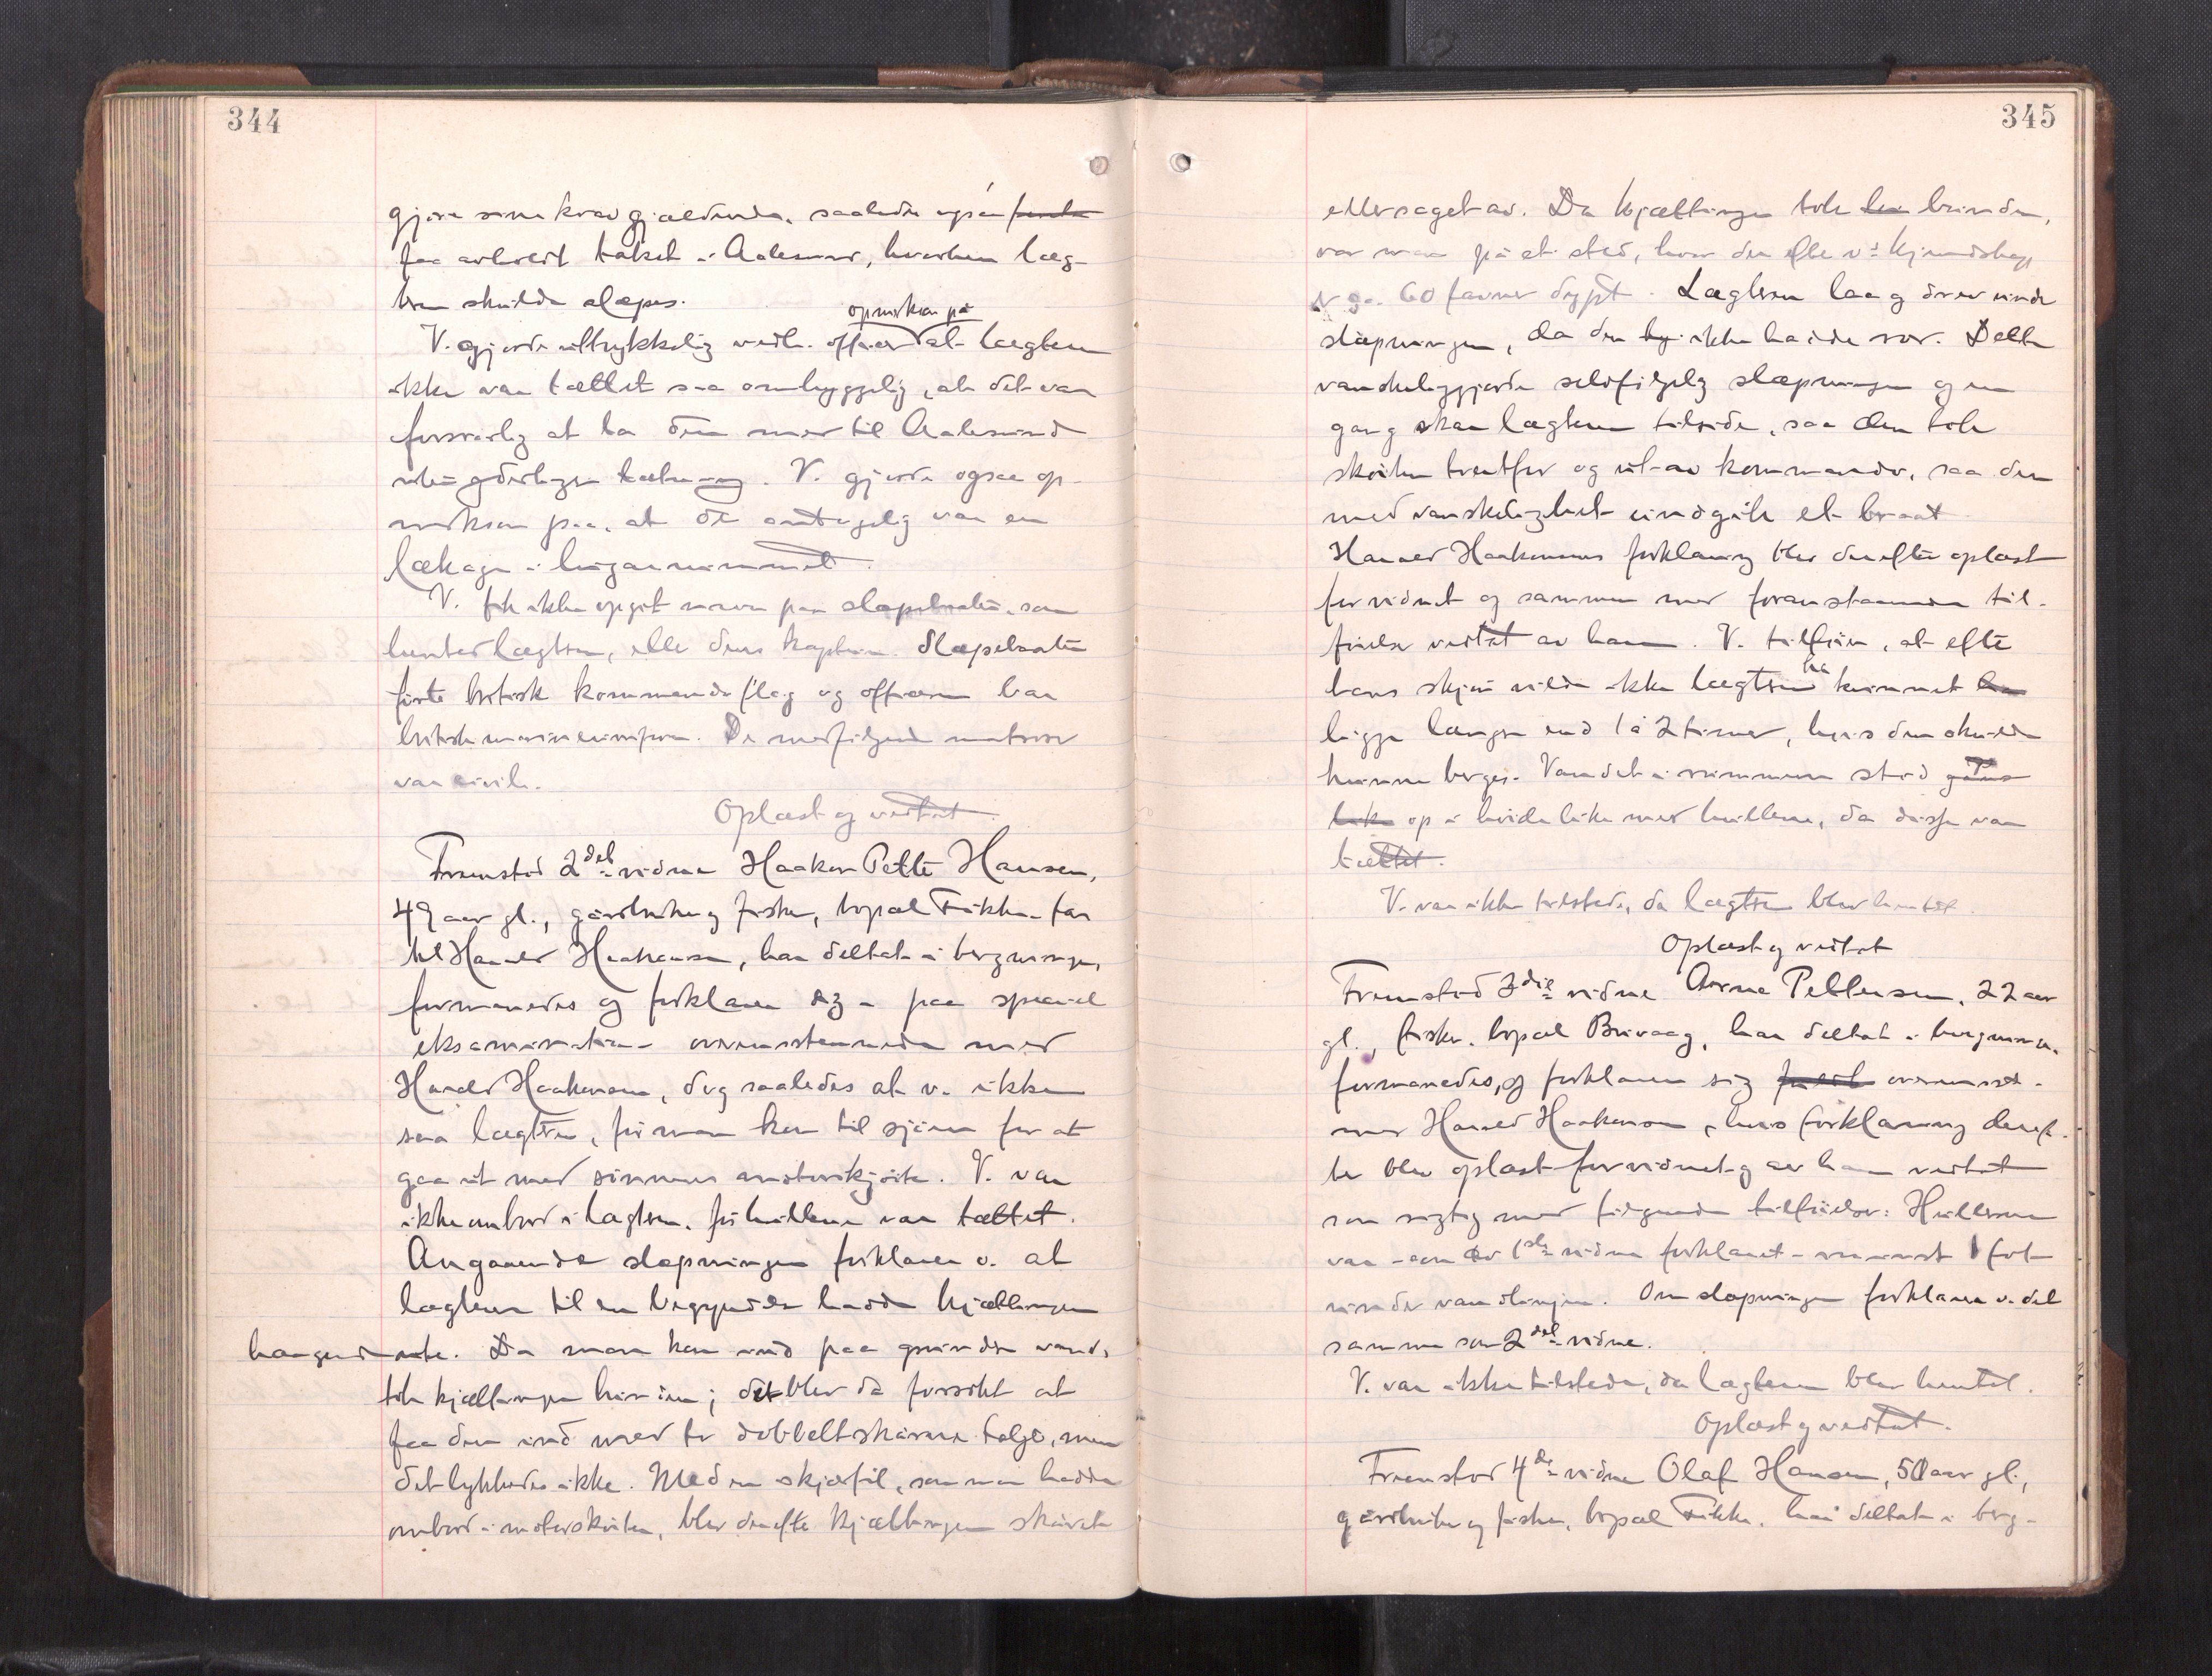 344
gjøre sine krav gjældende, saaledes også
faa avholdt takst i Aalesund, hvorhen læg-
teren skulde slæpes.
opmerksom på
V. gjorde uttrykkelig vedk. officer at lægteren
ikke var tættet saa omhyggelig, at det var
forsvarlig at ta den med til Aalesund
uten yderligere tætning. V. gjorde ogsaa op-
merksom paa, at der antagelig var en
lækage i lugarrummet.
V. fik ikke opgit navn paa slæpebaaten, som
hentet lægteren, eller dens kaptein. Slæpebaaten
førte britisk kommandoflag og officeren bar
britisk marineuniform. De medfølgende matroser
var civile.
Oplæst og vedtat.
Fremstod 2det vidne Haakon Petter Hansen,
49 aar gl., gårdbruker og fisker, bopæl Fikke. far
til Harald Haakonsen, har deltat i bergningen,
formanedes og forklarer sig - paa speciel
eksamination - overensstemmende med
Harald Haakonsen, dog saaledes at v. ikke
saa lægteren, før man kom til sjøen for at
gaa ut med sønnens motorskjøite. V. var
ikke ombord i lægteren, før hullene var tættet.
Angaaende slæpningen forklarer v. at
lægteren til en begyndelse hadde kjættingen
hængende ute. Da man kom ind paa grundere vand,
tok kjættingen bunden; det blev da forsøkt at
faa den ind med to dobbeltskårne taljer, men
det lykkedes ikke. Med en skjærfil, som man hadde
ombord i motorskøiten, blev derefter kjættingen skåret
345
eller saget av. Da kjættingen tok bunden,
var man på et sted, hvor der efter v's kjendskap
er ca. 60 favner dypt. Lægteren laa og drev under
slæpningen, da den ikke hadde ror. Dette
vanskeliggjorde selvfølgelig slæpningen og en
gang skar lægteren tilside, saa den tok
skøiten tverrtfor og ut av kommando, saa den
med vanskelighet undgik et braat
Harald Haakonsens forklaring blev derefter oplæst
for vidnet og sammen med foranstaaende til-
føielse vedtat av ham. V. tilføier, at efter
hans skjøn vilde ikke lægteren ha kunnet
ligge længer end 1 à 2 timer, hvis den skulde
kunne berges. Vandet i rummene stod
op i høide like med hullene, da disse var
tættet.
V. var ikke tilstede, da lægteren blev hentet.
Oplæst og vedtat
Fremstod 3die vidne Arne Pettersen, 22 aar
gl., fisker, bopæl Brivaag, har deltat i bergningen,
formanedes, og forklarer sig overensst.
med Harald Haakonsen, hvis forklaring deref-
ter blev oplæst for vidnet og av ham vedtat
som rigtig med følgende tilføielser: Hullerne
var - som av 1ste vidne forklaret - minst 1 fot
under vandlinjen. Om slæpningen forklarer v. det
samme som 2det vidne.
V. var ikke tilstede, da lægteren blev hentet.
Oplæst og vedtat.
Fremstod 4de vidne Olaf Hansen, 50 aar gl.,
gårdbruker og fisker, bopæl Fikke, har deltat i berg-